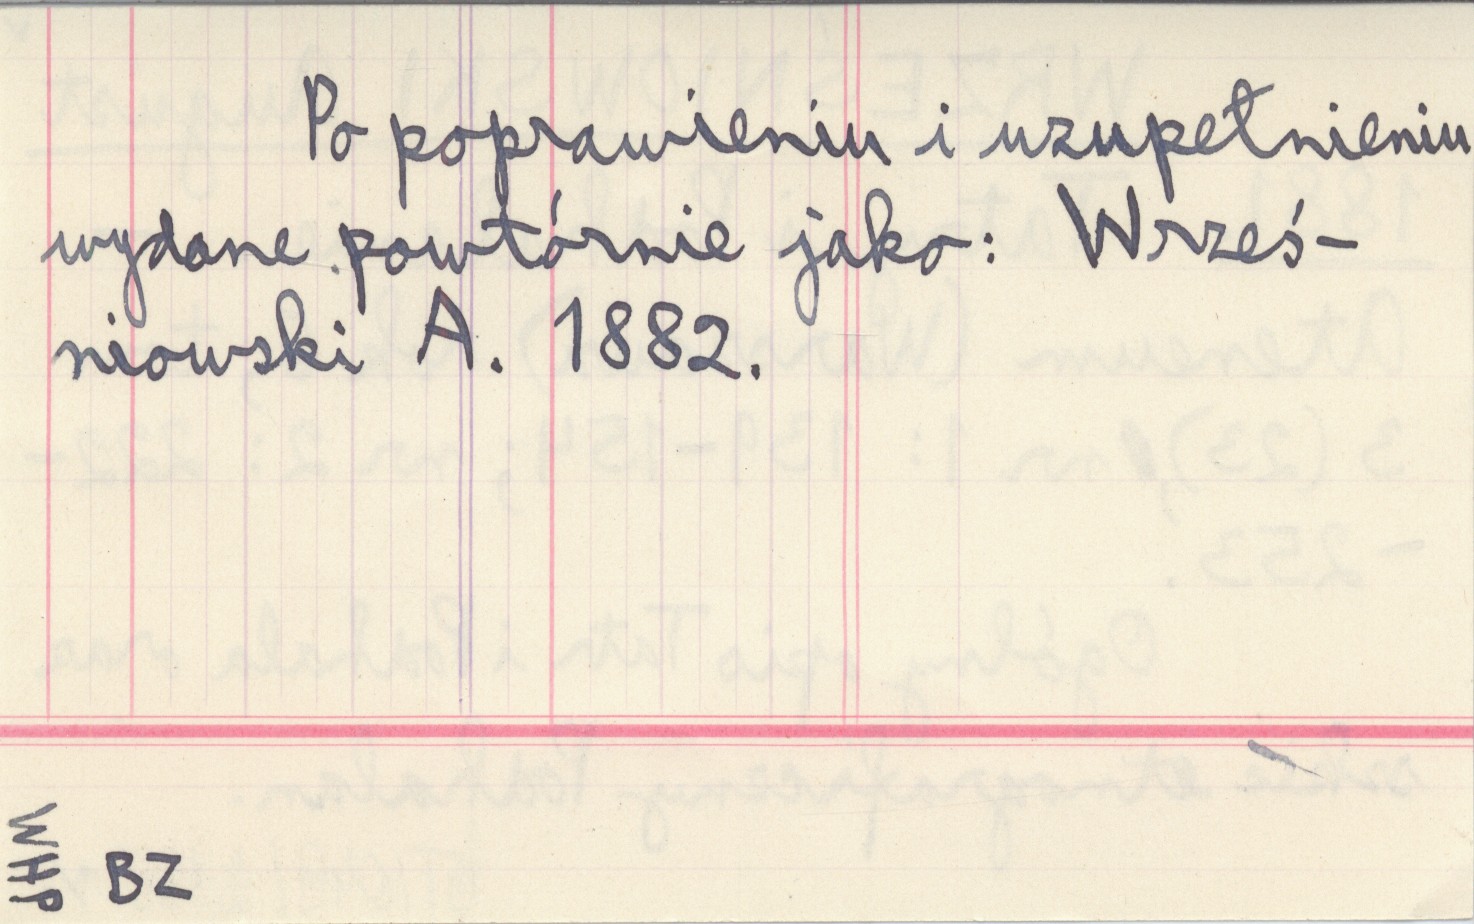 Po poprawieniu i uzupełnieniu
wydane powtórnie jako: Wrześ-
niowski A. 1882.
WHP
BZ